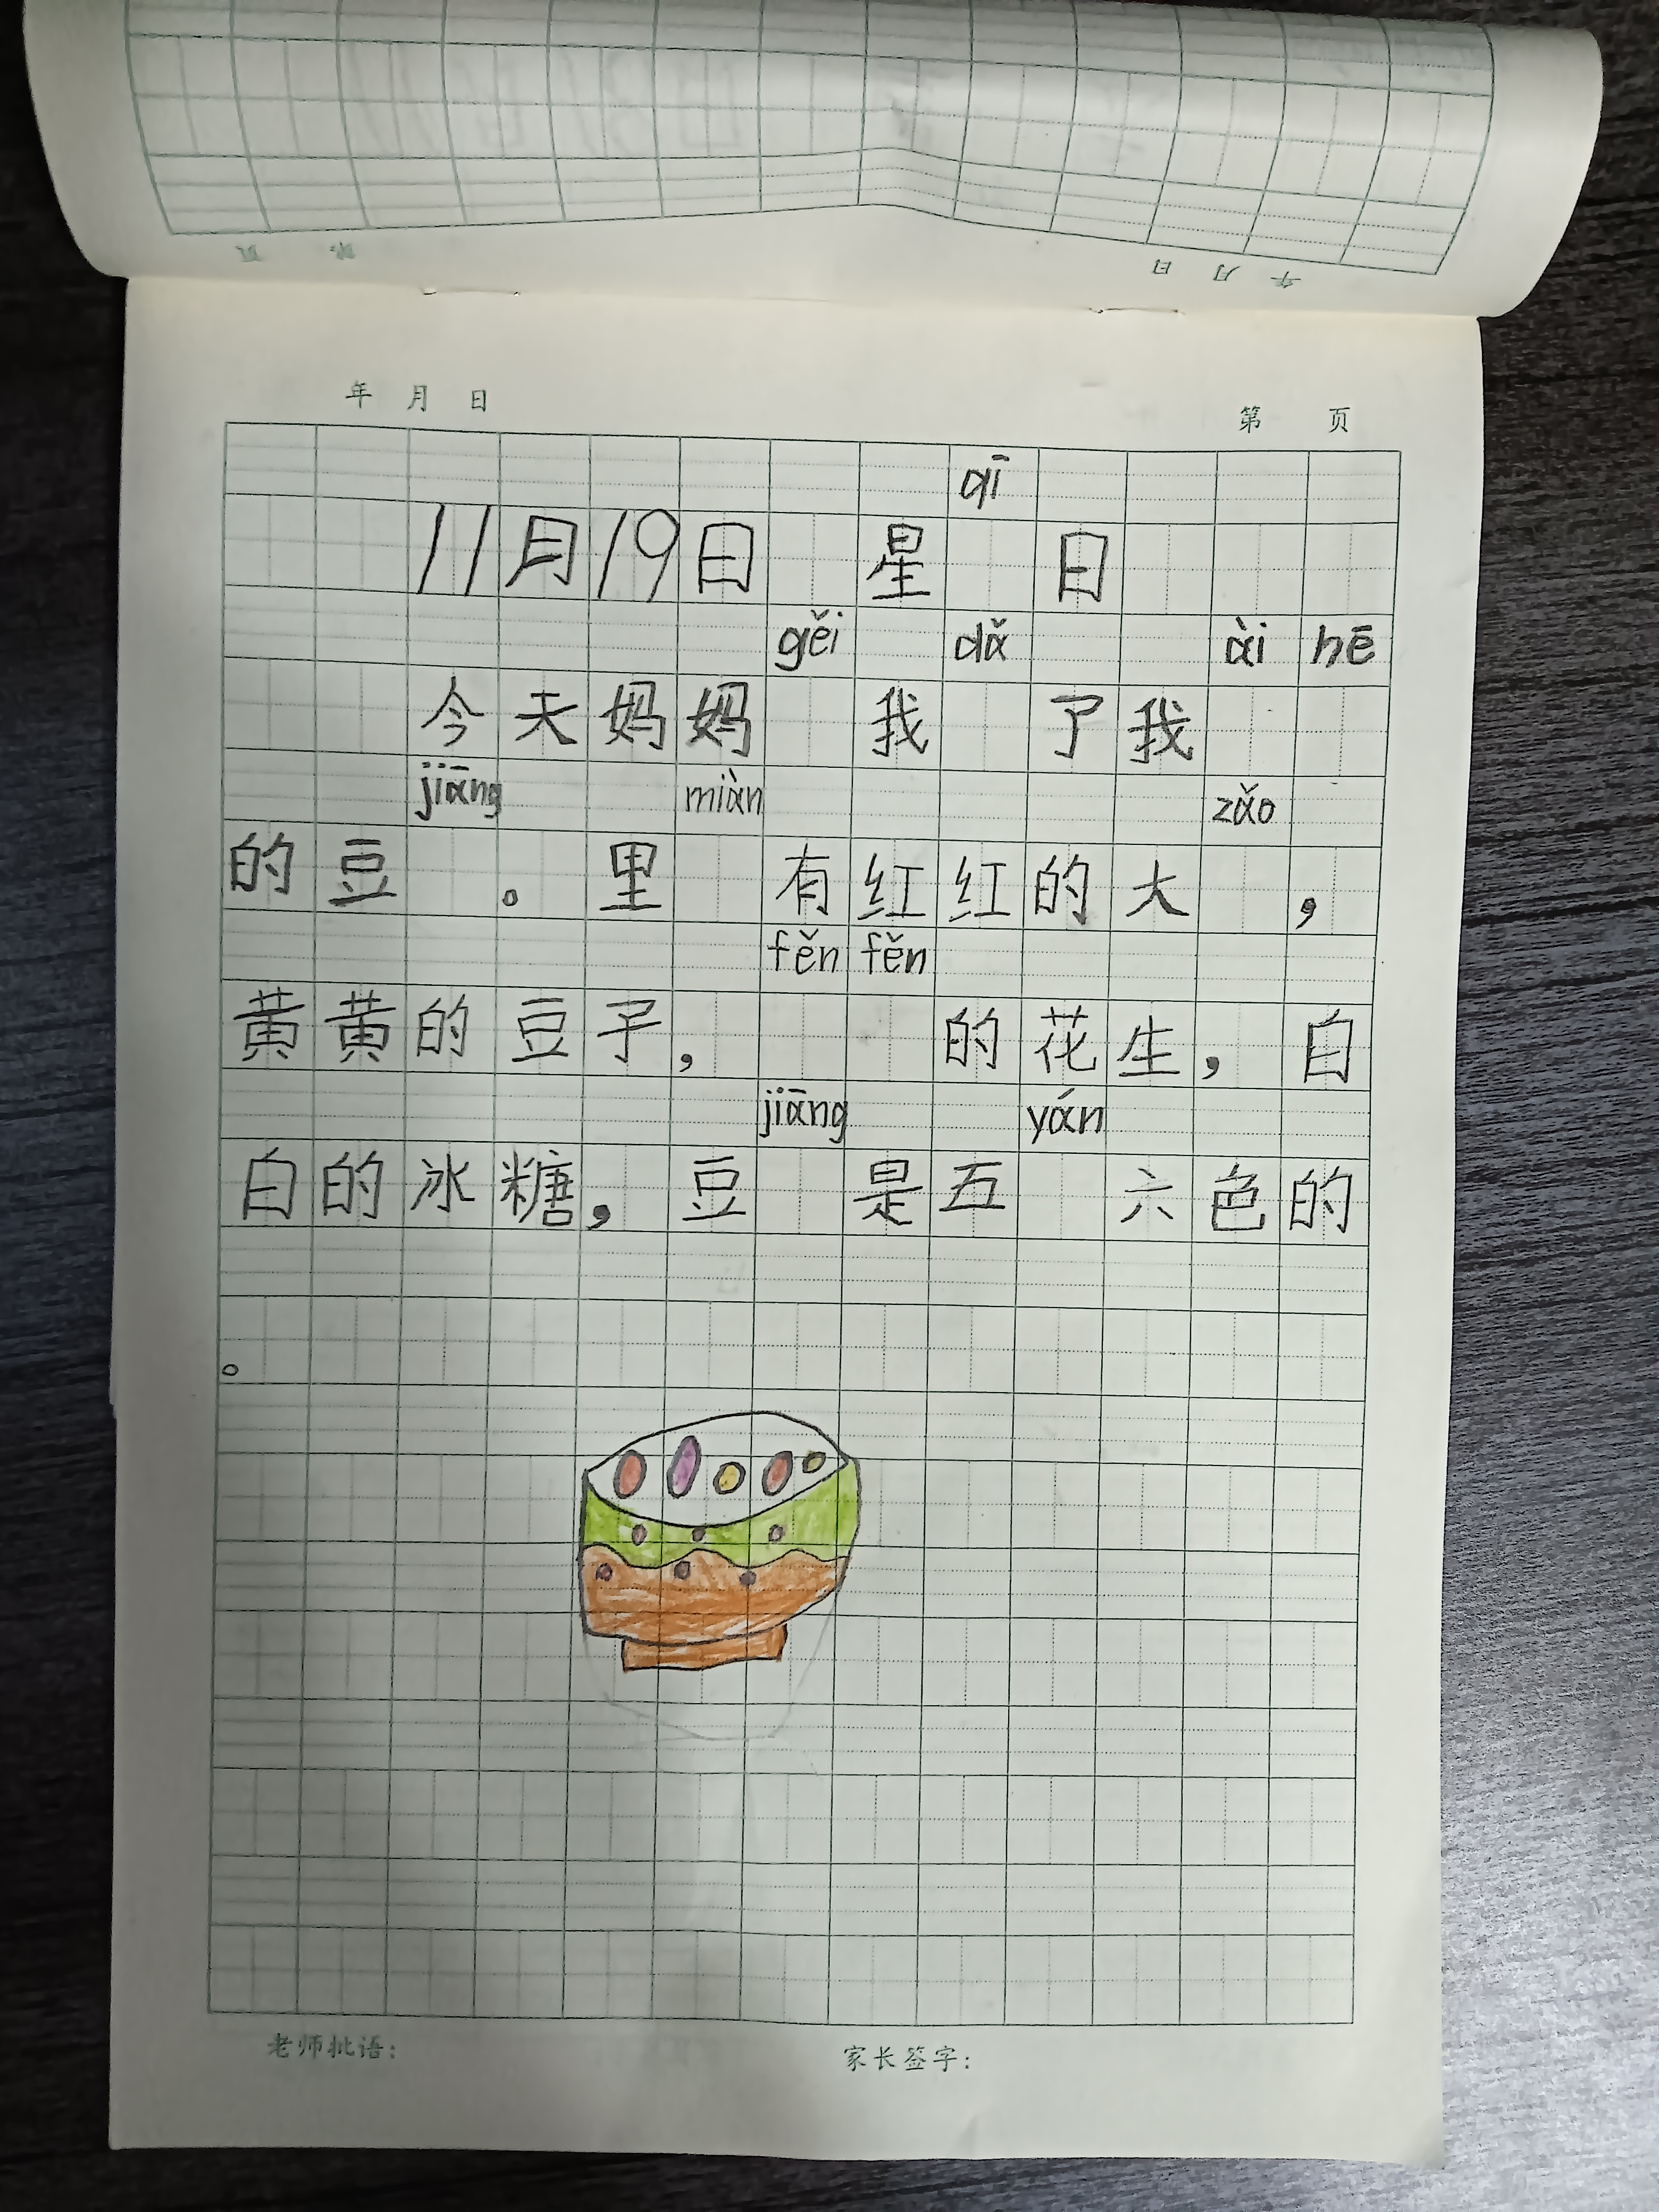 年 月 日 第 页
qī
11月19日 星 日
gěi dǎ ài hē
今天妈妈 我 了我
jiāng miàn zǎo
的豆 。里 有红红的大 ，
fěn fěn
黄黄的豆子， 的花生，白
jiāng yán
白的冰糖，豆 是五 六色的
。
老师批语： 家长签字：